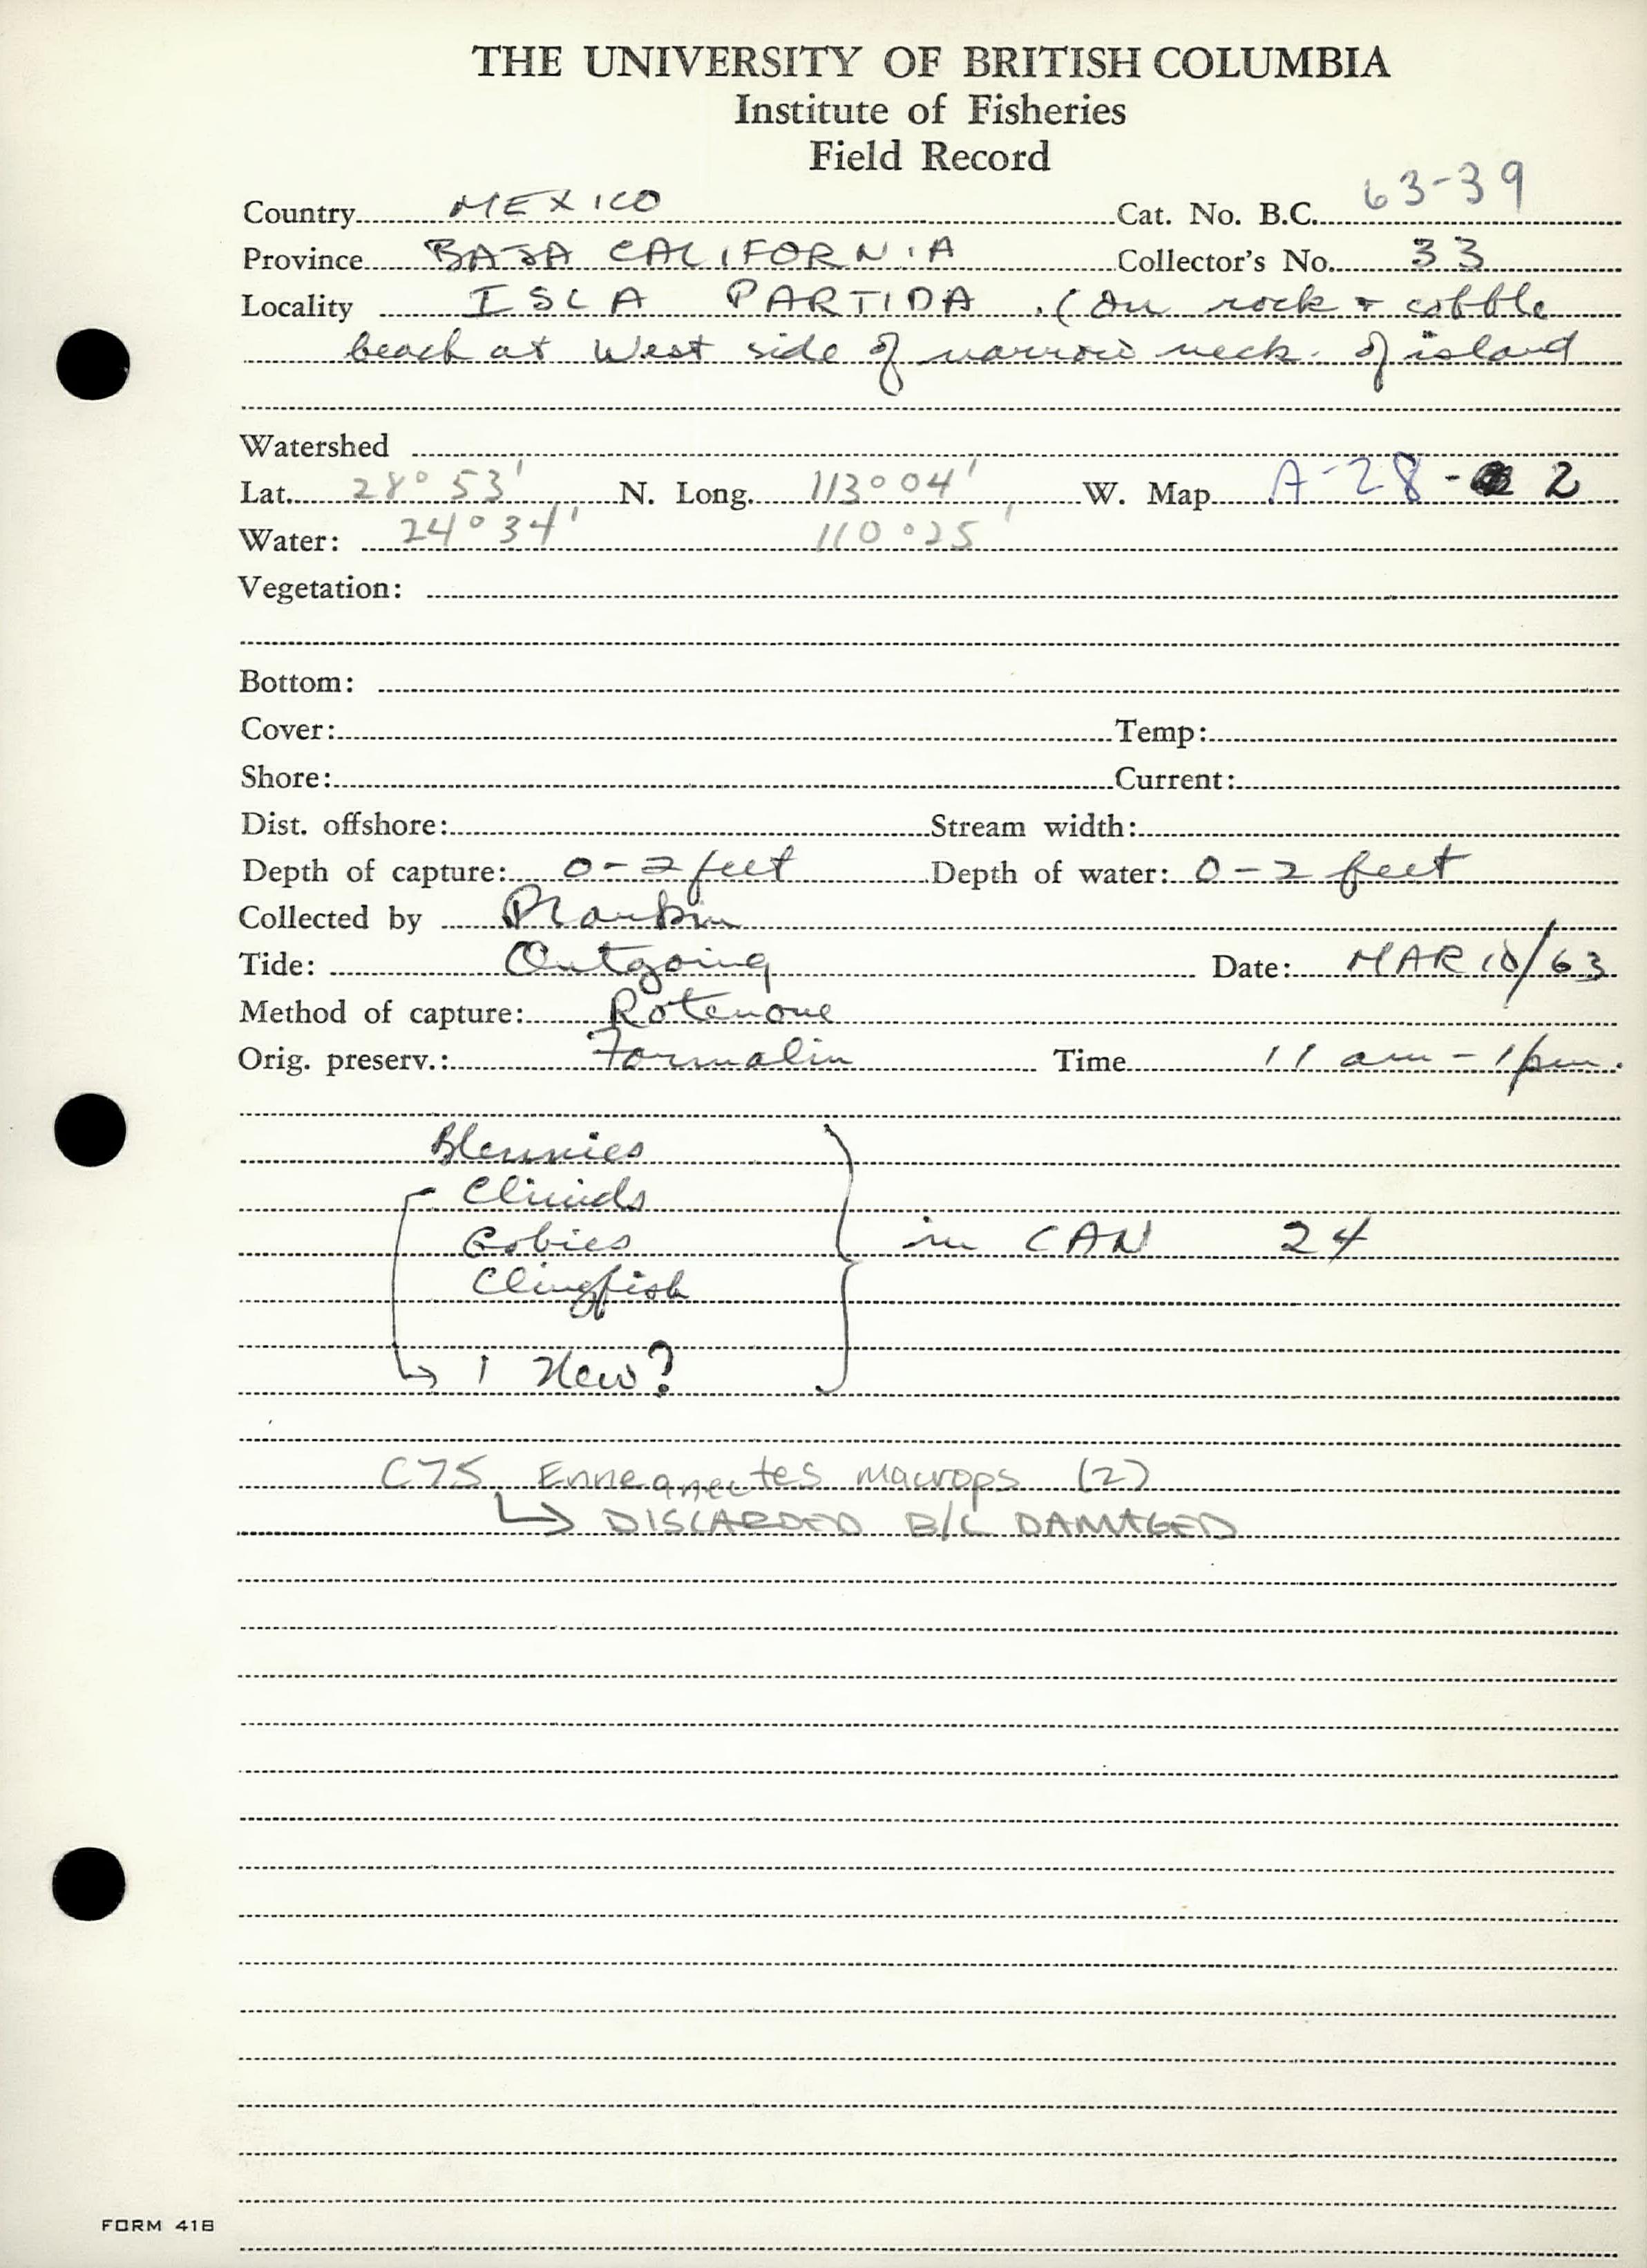 THE UNIVERSITY OF BRITISH COLUMBIA
Institute of Fisheries
Field Record
Country MEXICO Cat. No. B.C. 63-39
Province BAJA CALIFORNIA Collector's No. 33
Locality ISLA PARTIDA . (On rock + cobble
beach at West side of narrow neck. of island
Watershed
Lat. 28° 53' N. Long. 113° 04' W. Map A-28- 2
Water: 24° 34' 110° 25'
Vegetation:
Bottom:
Cover: Temp:
Shore: Current:
Dist. offshore: Stream width:
Depth of capture: 0-2 feet Depth of water: 0-2 feet
Collected by
Tide: Outgoing Date: MAR 10/63
Method of capture: Rotenone
Orig. preserv.: Formalin Time 11 am - 1 pm.
Blennies
Clinids
Gobies in CAN 24
Clingfish
↳ 1 New?
C75 Enneanectes macrops (2)
↳ DISCARDED B/C DAMAGED
FORM 41B